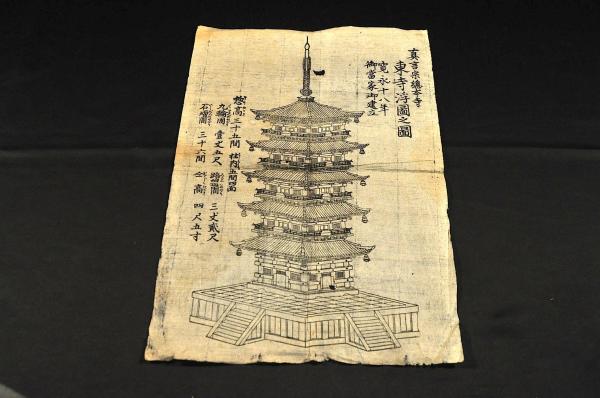 真言宗總本寺
東寺浮圖之圖
寛永十八年
御當家御建立
惣高三十五間 柱内五間四面
九輪 壹丈五尺 三丈貳尺
石壇 三十六間 仝高 四尺五寸